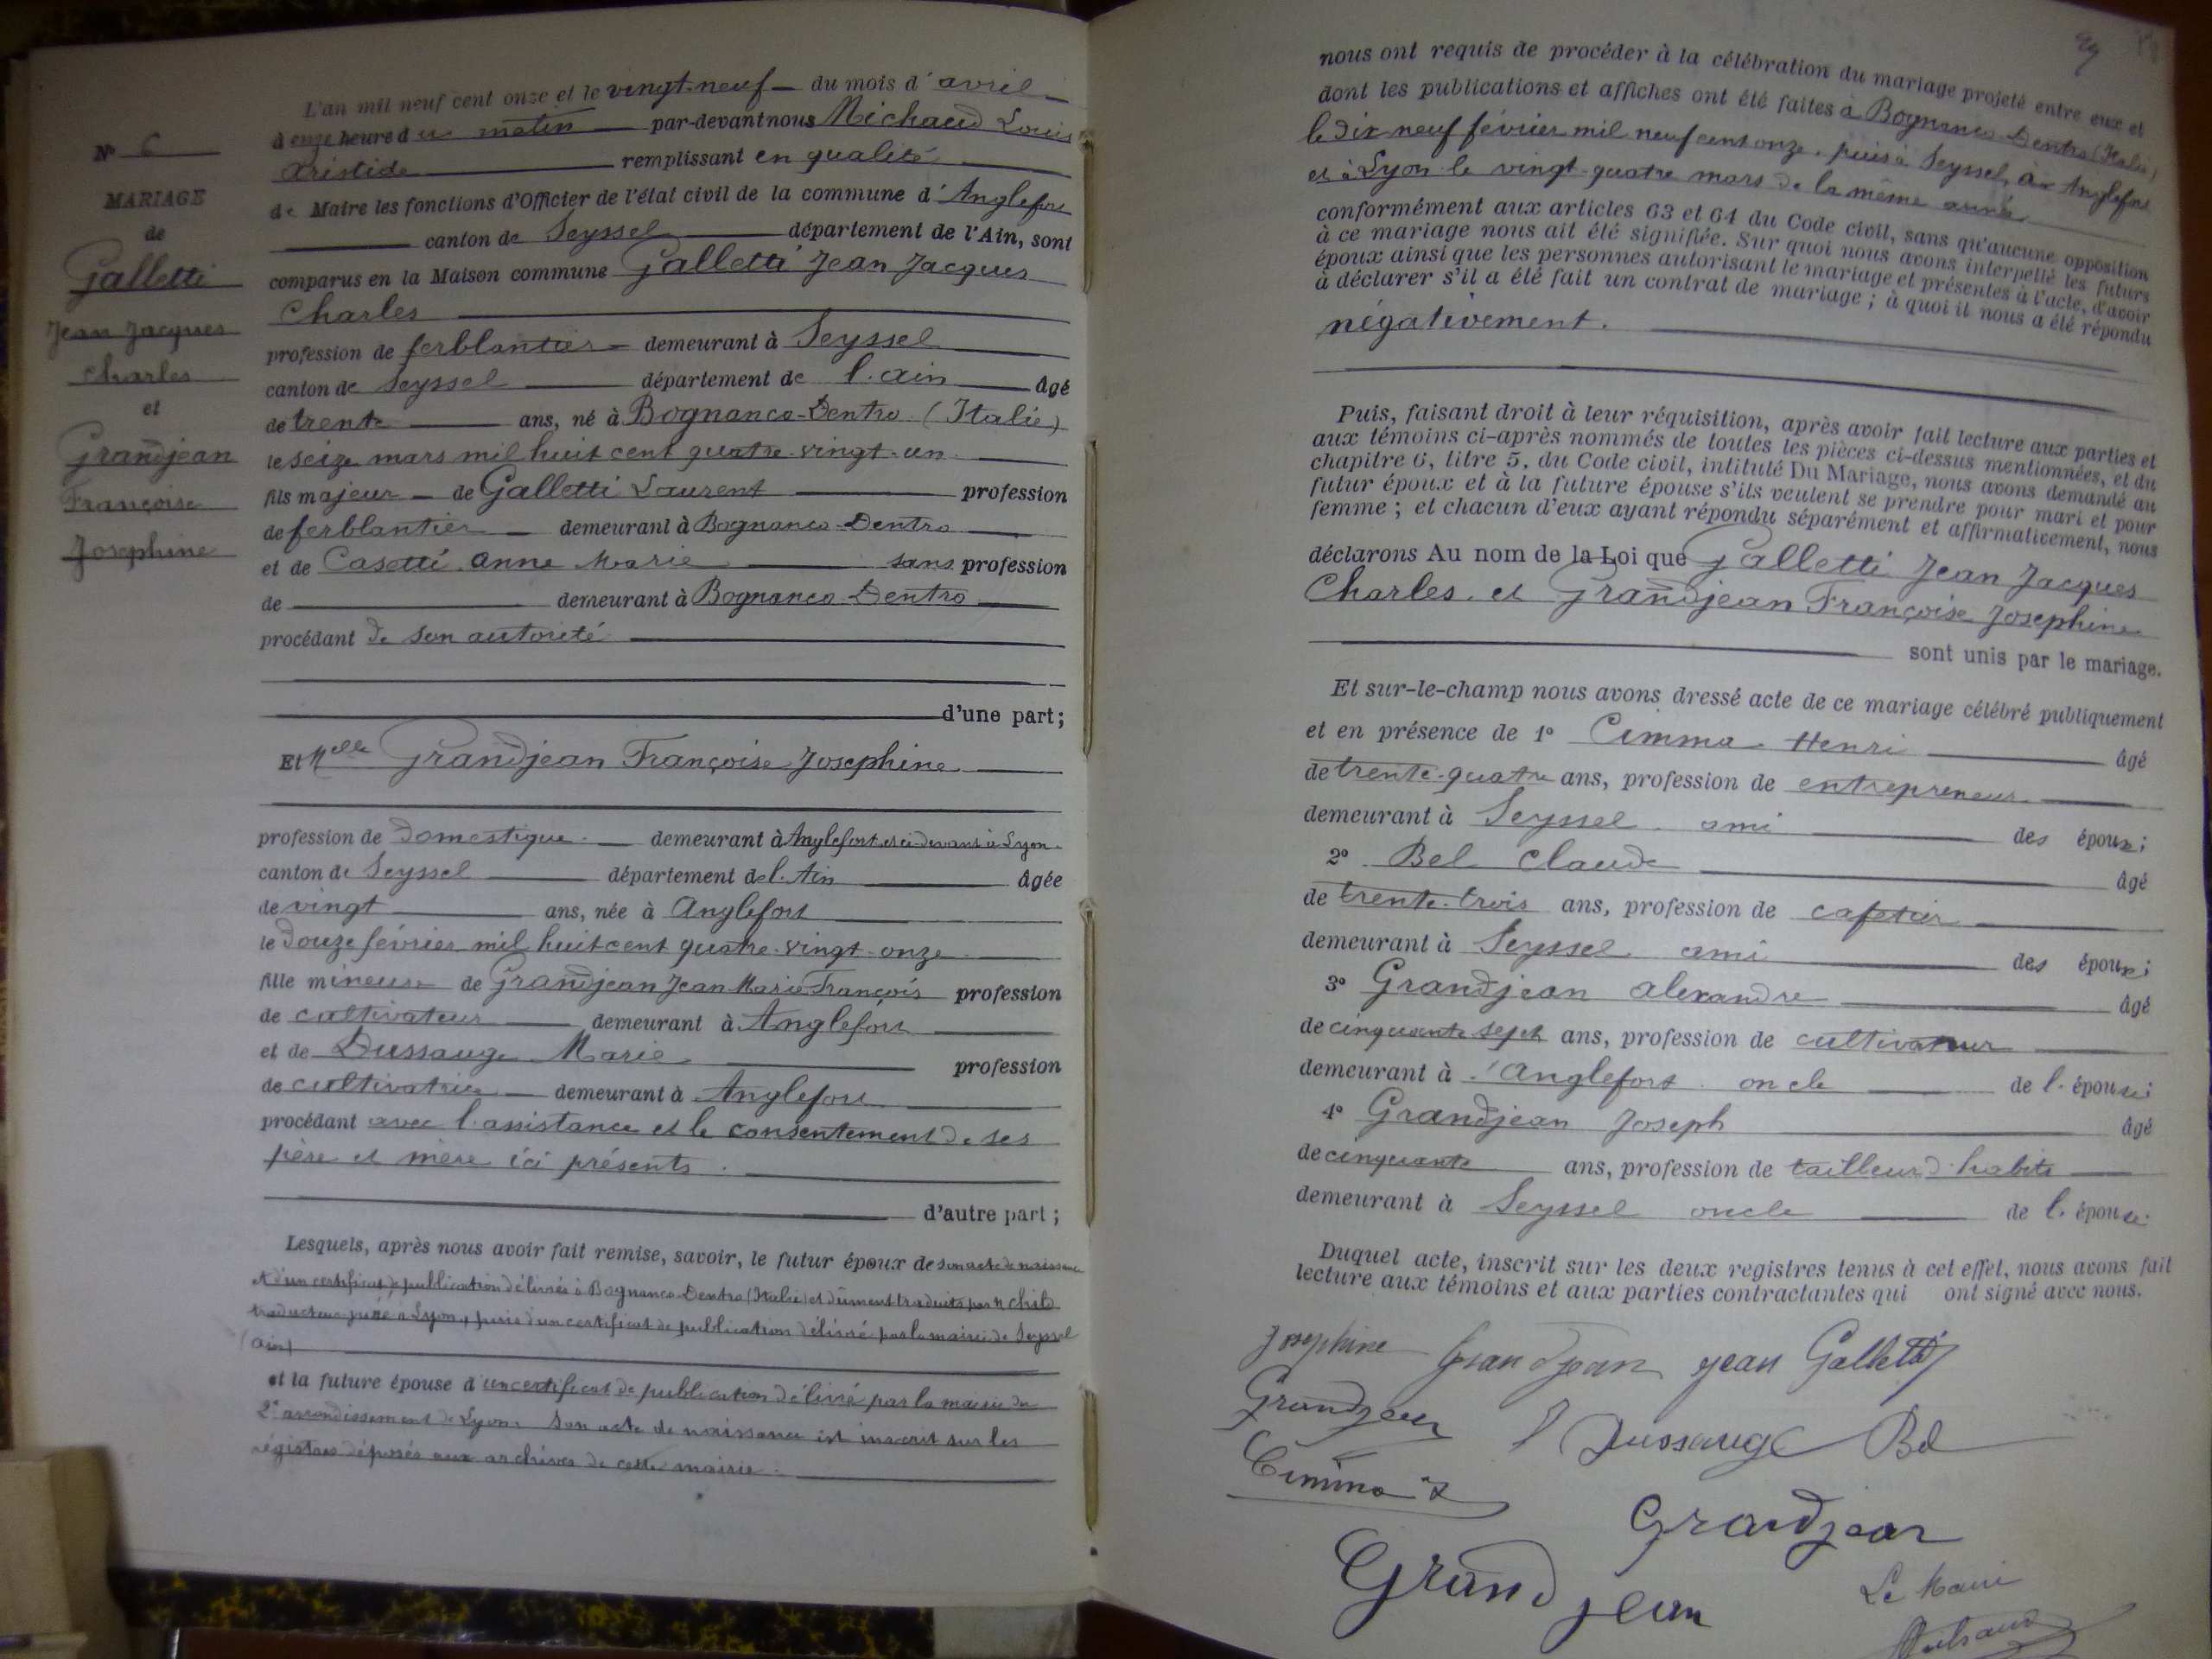 Nº 6
MARIAGE
de
Galletti
Jean Jacques
Charles
et
Grandjean
Françoise
Josephine
L'an mil neuf cent onze et le vingt-neuf du mois d'avril
à onze heure du matin par-devant nous Michaud Louis
Aristide remplissant en qualité
de Maire les fonctions d'Officier de l'état civil de la commune d'Anglefort
canton de Seyssel département de l'Ain, sont
comparus en la Maison commune Galletti Jean Jacques
Charles
profession de ferblantier demeurant à Seyssel
canton de Seyssel département de l'ain âgé
de trente ans, né à Bognanco-Dentro (Italie)
le seize mars mil huit cent quatre-vingt-un
fils majeur de Galletti Laurent profession
de ferblantier demeurant à Bognanco-Dentro
et de Casetti Anne Marie sans profession
de demeurant à Bognanco-Dentro
procédant de son autorité
d'une part;
Et Melle Grandjean Françoise Josephine
profession de domestique demeurant à Anglefort et ci-devant à Lyon
canton de Seyssel département de l'Ain âgée
de vingt ans, née à Anglefort
le douze février mil huit cent quatre-vingt-onze
fille mineure de Grandjean Jean Marie François profession
de cultivateur demeurant à Anglefort
et de Dussauge Marie profession
de cultivatrice demeurant à Anglefort
procédant avec l'assistance et le consentement de ses
père et mère ici présents.
d'autre part;
Lesquels, après nous avoir fait remise, savoir, le futur époux de son acte de naissance
et d'un certificat de publication délivrés à Bognanco-Dentro (Italie) et dûment traduits par Child
traducteur juré à Lyon, puis d'un certificat de publication délivré par la mairie de Seyssel
(Ain)
et la future épouse d'un certificat de publication délivré par la mairie du
2e arrondissement de Lyon. Son acte de naissance est inscrit sur les
régistres déposés aux archives de cette mairie.
99
nous ont requis de procéder à la célébration du mariage projeté entre eux et
dont les publications et affiches ont été faites à Bognanco-Dentro (Italie)
le dix neuf février mil neuf cent onze, puis à Seyssel, à Anglefort
et à Lyon le vingt-quatre mars de la même année
conformément aux articles 63 et 64 du Code civil, sans qu'aucune opposition
à ce mariage nous ait été signifiée. Sur quoi nous avons interpellé les futurs
époux ainsi que les personnes autorisant le mariage et présentes à l'acte, d'avoir
à déclarer s'il a été fait un contrat de mariage; à quoi il nous a été répondu
négativement.
Puis, faisant droit à leur réquisition, après avoir fait lecture aux parties et
aux témoins ci-après nommés de toutes les pièces ci-dessus mentionnées, et du
chapitre 6, titre 5, du Code civil, intitulé Du Mariage, nous avons demandé au
futur époux et à la future épouse s'ils veulent se prendre pour mari et pour
femme; et chacun d'eux ayant répondu séparément et affirmativement, nous
déclarons Au nom de la Loi que Galletti Jean Jacques
Charles et Grandjean Françoise Josephine
sont unis par le mariage.
Et sur-le-champ nous avons dressé acte de ce mariage célébré publiquement
et en présence de 1º Cimma Henri âgé
de trente-quatre ans, profession de entrepreneur
demeurant à Seyssel ami des époux;
2º Bel Claude âgé
de trente-trois ans, profession de cafetier
demeurant à Seyssel ami des époux;
3º Grandjean alexandre âgé
de cinquante sept ans, profession de cultivateur
demeurant à Anglefort oncle de l'épouse;
4º Grandjean Joseph âgé
de cinquante ans, profession de tailleur d'habits
demeurant à Seyssel oncle de l'épouse.
Duquel acte, inscrit sur les deux registres tenus à cet effet, nous avons fait
lecture aux témoins et aux parties contractantes qui ont signé avec nous.
Josephine Grandjean Jean Galletti
Grandjean Dussauge Bel
Cimma
Grandjean
Grandjean
Le Maire